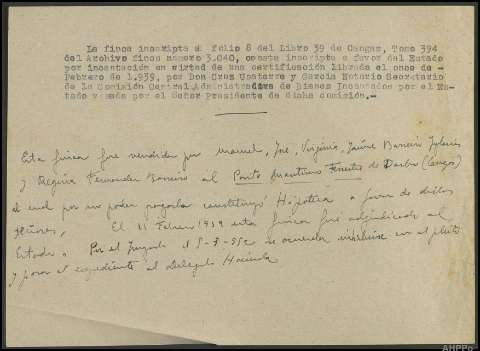 La finca inscripta al folio 8 del Libro 39 de Cangas, Tomo 394
del Archivo finca número 3.040, consta inscripta a favor del Estado
por incautación en virtud de una certificación librada el once de -
Febrero de 1.939, por Don Cruz Usatorre y García Notario Secretario
de la Comisión Central Administradiva de Bienes Incautados por el Es-
tado visada por el Señor Presidente de dicha comisión.-
Esta finca fue vendida por Manuel, José, Virginia, Jaime Barreiro Iglesias
y Regina Fernandez Barreiro al Porito Marítimo Fenutes de Darbo (Cangas)
el cual por no poder pagarla constituyó Hipoteca a favor de dichos
señores. El 11 Febrero 1939 esta finca fué adjudicada al
Estado. Por el Juzgado el 5-3-552 se acuerda inhibirse en el pleito
y pasar el expediente al Delegado Hacienda
AHPPo